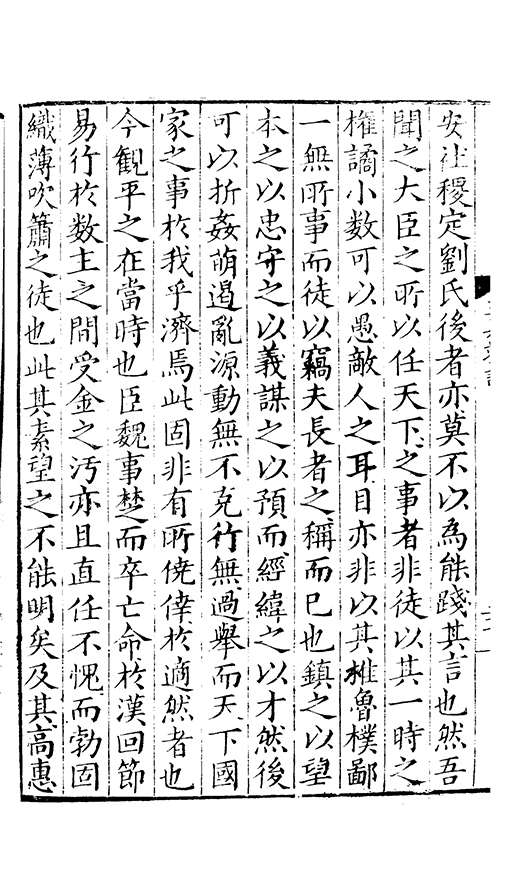 安社稷定劉氏後者亦莫不以為能踐其言也然吾
聞之大臣之所以任天下之事者非徒以其一時之
權譎小數可以愚敵人之耳目亦非以其椎魯樸鄙
一無所事而徒以竊夫長者之稱而已也鎮之以望
本之以忠守之以義謀之以預而經緯之以才然後
可以折姦萌遏亂源動無不克行無過舉而天下國
家之事於我乎濟焉此固非有所僥倖於適然者也
今觀平之在當時也臣魏事楚而卒亡命於漢回節
易行於数主之間受金之汚亦且直任不愧而勃固
織薄吹簫之徒也此其素望之不能明矣及其高惠